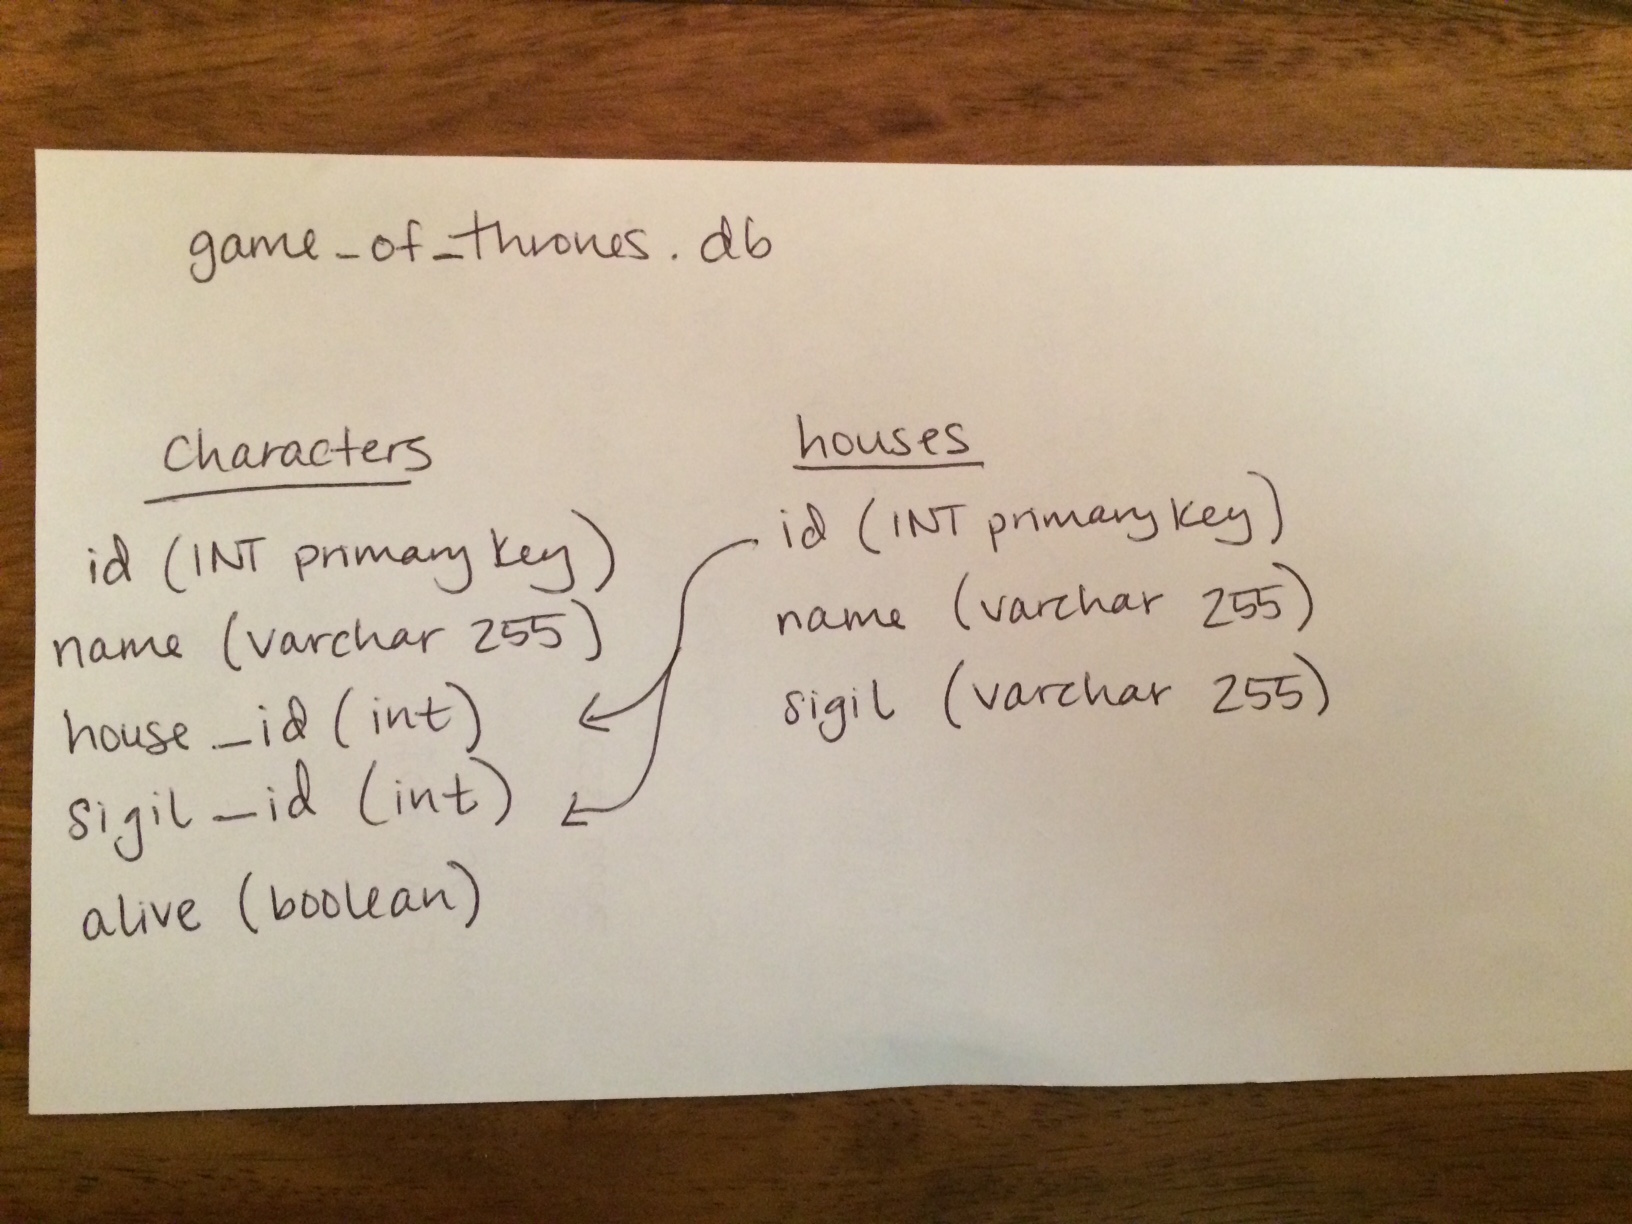 game_of_thrones.db
characters
id (INT primary key)
name (varchar 255)
house_id (int)
sigil_id (int)
alive (boolean)
houses
id (INT primary key)
name (varchar 255)
sigil (varchar 255)